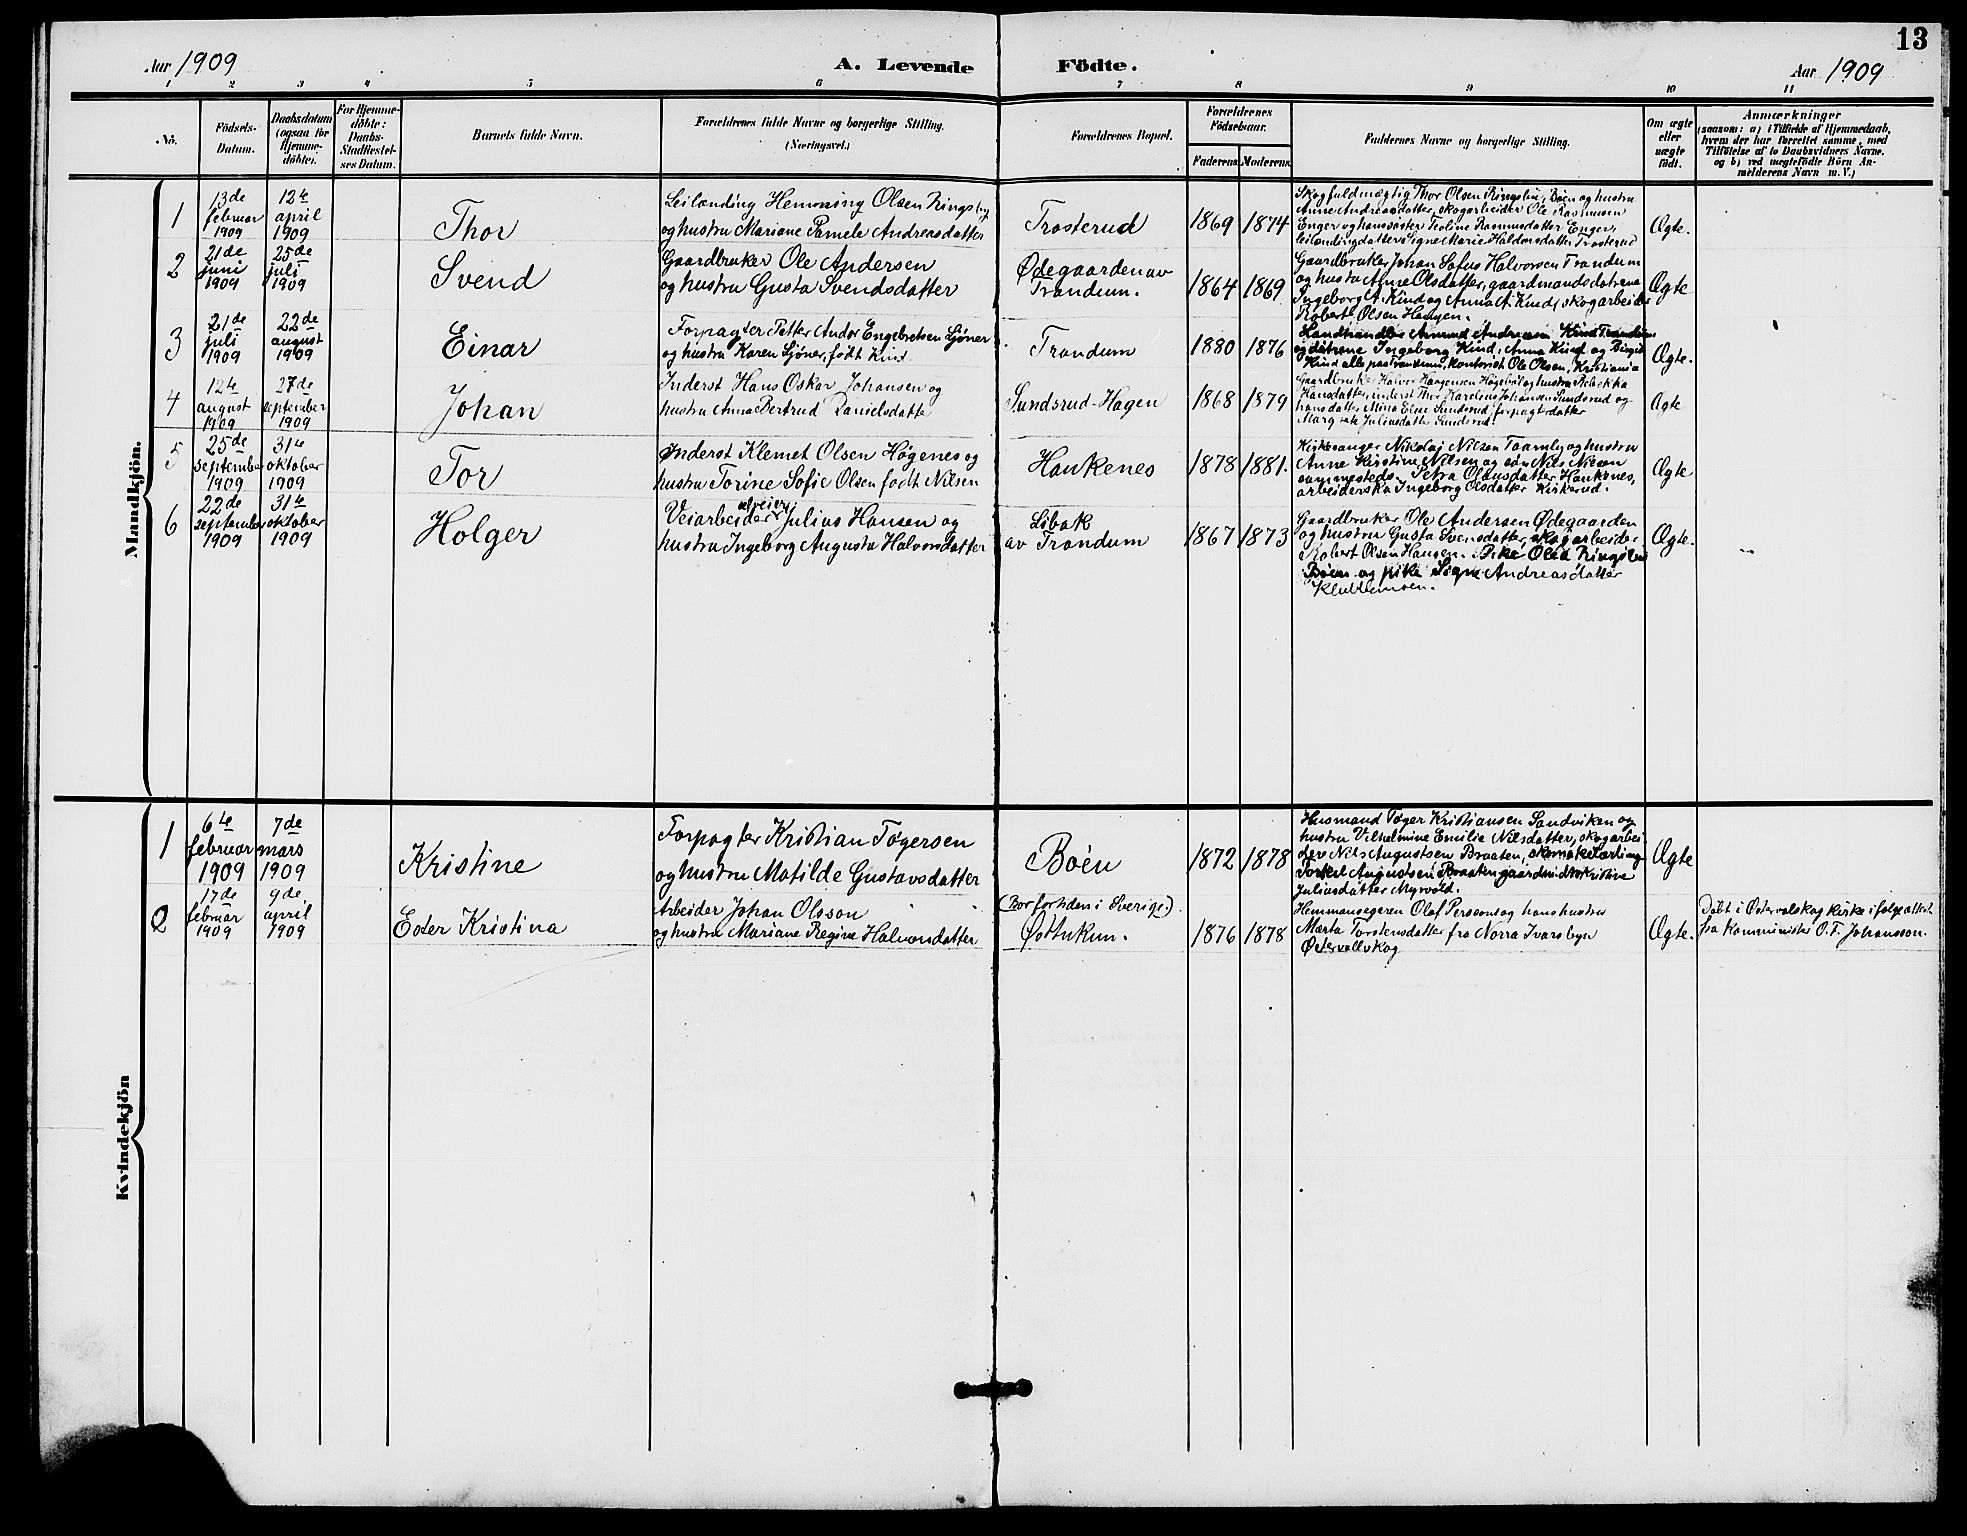 13
Aar 1909
A. Levende Födte.
Aar 1909
1 2 3 4 5 6 7 8 9 10 11
No.
Födsels-
Datum.
Daabsdatum
(ogsaa for
Hjemme-
döbte).
For Hjemme-
döbte:
Daabs-
Stadfæstel-
ses Datum.
Barnets fulde Navn.
Forældrenes fulde Navne og borgerlige Stilling.
(Næringsvei.)
Forældrenes Bopæl.
Forældrenes
Födselsaar.
Faderens. Moderens.
Faddernes Navne og borgerlige Stilling.
Om ægte
eller
uægte
født.
Anmærkninger
(saasom: a) i Tilfælde af Hjemmedaab,
hvem der har forrettet samme, med
Tilføielse af to Daabsvidners Navne.
og b) ved uægtefødte Börn An-
melderens Navn m. V.)
Mandkjön.
1
13de
februar
1909
12te
april
1909
Thor
Leilænding Hemming Olsen Ringsby
og hustru Mariane Pamele Andreasdatter
Trosterud
1869 1874
Skogfuldmægtig Thor Olsen Böen og hustru
Anne Andreasdatter, skogarbeider Ole Rasmussen
Enger og hans søster Teoline Rasmusdatter Enger,
leilændingdatter Signe Marie Haldorsdatter Trosterud
Ægte.
2
21de
juni
1909
25de
juli
1909
Svend
Gaardbruker Ole Andersen
og hustru Gusta Svendsdatter
Ødegaarden av
Trandum.
1864 1869
Gaardbruker Johan Sofus Halvorsen Trandum
og hustru Anne Olsdatter, gaardmandsdøtrene
Ingeborg A. Kind og Anna A. Kind, skogarbeider
Robert Olsen Haugen.
Ægte
3
21de
juli
1909
22de
august
1909
Einar
Forpagter Petter Andor Engebretsen Sjöner
og hustru Karen Sjöner, født Kind
Trandum
1880 1876
Landhandler Amund Andreasen Kind Trandum
og døtrene Ingeborg Kind, Anna Kind og Birgit
Kind alle paa Trandum, kontorist Ole Olsen, Kristiania
Ægte.
4
12te
august
1909
27de
september
1909
Johan
Inderst Hans Oskar Johansen og
hustru Anna Bertrud Danielsdatter
Sundsrud-Hagen
1868 1879
Gaardbruker Halvor Haagensen Høgebøl og hustru Rebekka
Hansdatter, inderst Thor Karelius Johansen Sundsrud og
hans datter Mina Elise Sundsrud, forpagterdatter
Margrete Juliusdatter Sundsrud.
Ægte
5
25de
september
1909
31te
oktober
1909
Tor
Inderst Klemet Olsen Høgenes og
hustru Torine Sofie Olsen født Nilsen
Haukenes
1878 1881.
Kirkesanger Nikolaj Nilsen Taarnby og hustru
Anne Kristine Nilsen og søn Nils Nilsen
sammesteds. Petra Olausdatter Haukenes,
arbeiderska Ingeborg Olsdatter Kirkerud.
Ægte
6
22de
september
1909
31te
oktober
1909
Holger
Veiarbeider Julius Hansen og
hustru Ingeborg Augusta Halvorsdatter
Libak
av Trandum
1867 1873
Gaardbruker Ole Andersen Ødegaarden
og hustru Gusta Svensdatter, skogarbeider
Robert Olsen Haugen. Pike Olea
Böen og pike Signe Andreasdatter
Ægte.
Kvindekjön
1
6te
februar
1909
7de
mars
1909
Kristine
Forpagter Kristian Tøgersen
og hustru Matilde Gustavsdatter
Boën
1872 1878
Husmand Tøger Kristiansen Sandviken og
hustru Vilhelmine Emilie Nilsdatter, skogarbei-
der Nils Augustsen Braaten, skomakerlærling
Torkel Augustsen Braaten, Kristine
Juliusdatter Myrvold.
Ægte
2
17de
februar
1909
9de
april
1909
Ester Kristina
Arbeider Johan Olsson
og hustru Mariane Regine Halvorsdatter
(Bor fortiden i Sverige)
1876 1878
Hemmansegeren Olof Persson og hans hustru
Marta Torstensdatter fra Norra Ivarsbyn
Østervallskog
Ægte.
Døbt i Østervalskog kirke i følge attest
fra Komminister O. F. Johansson.